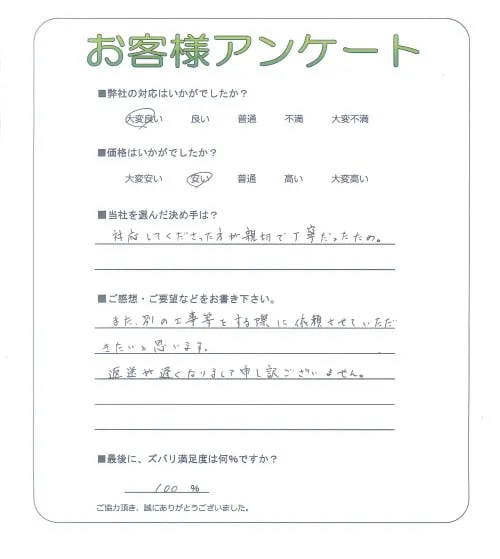 お客様アンケート
■弊社の対応はいかがでしたか？
大変良い 良い 普通 不満 大変不満
■価格はいかがでしたか？
大変安い 安い 普通 高い 大変高い
■当社を選んだ決め手は？
対応してくださった方が親切で丁寧だったため。
■ご感想・ご要望などをお書き下さい。
また、別の工事等をする際に依頼させていただ
きたいと思います。
返送が遅くなりまして申し訳ございません。
■最後に、ズバリ満足度は何％ですか？
100 %
ご協力頂き、誠にありがとうございました。